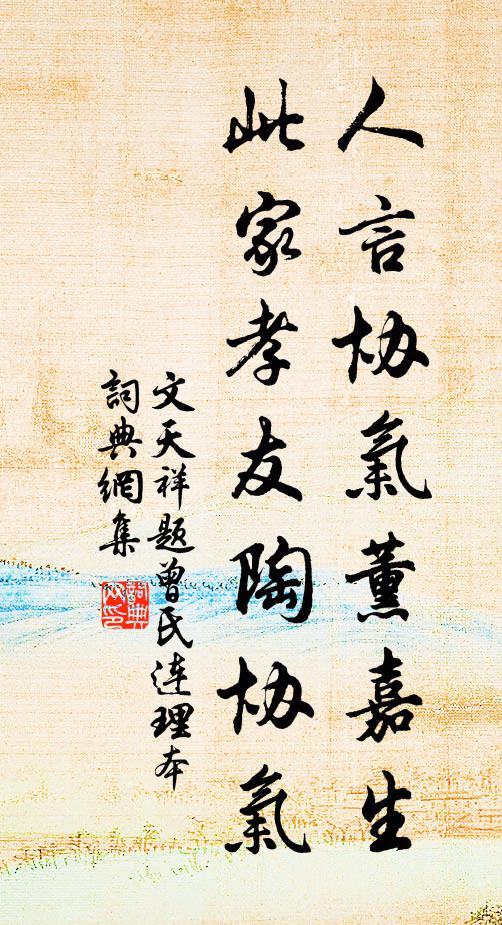 人言协氣薰嘉生
此家孝友陶协氣
文天祥題曾氏连理本
詞典網集